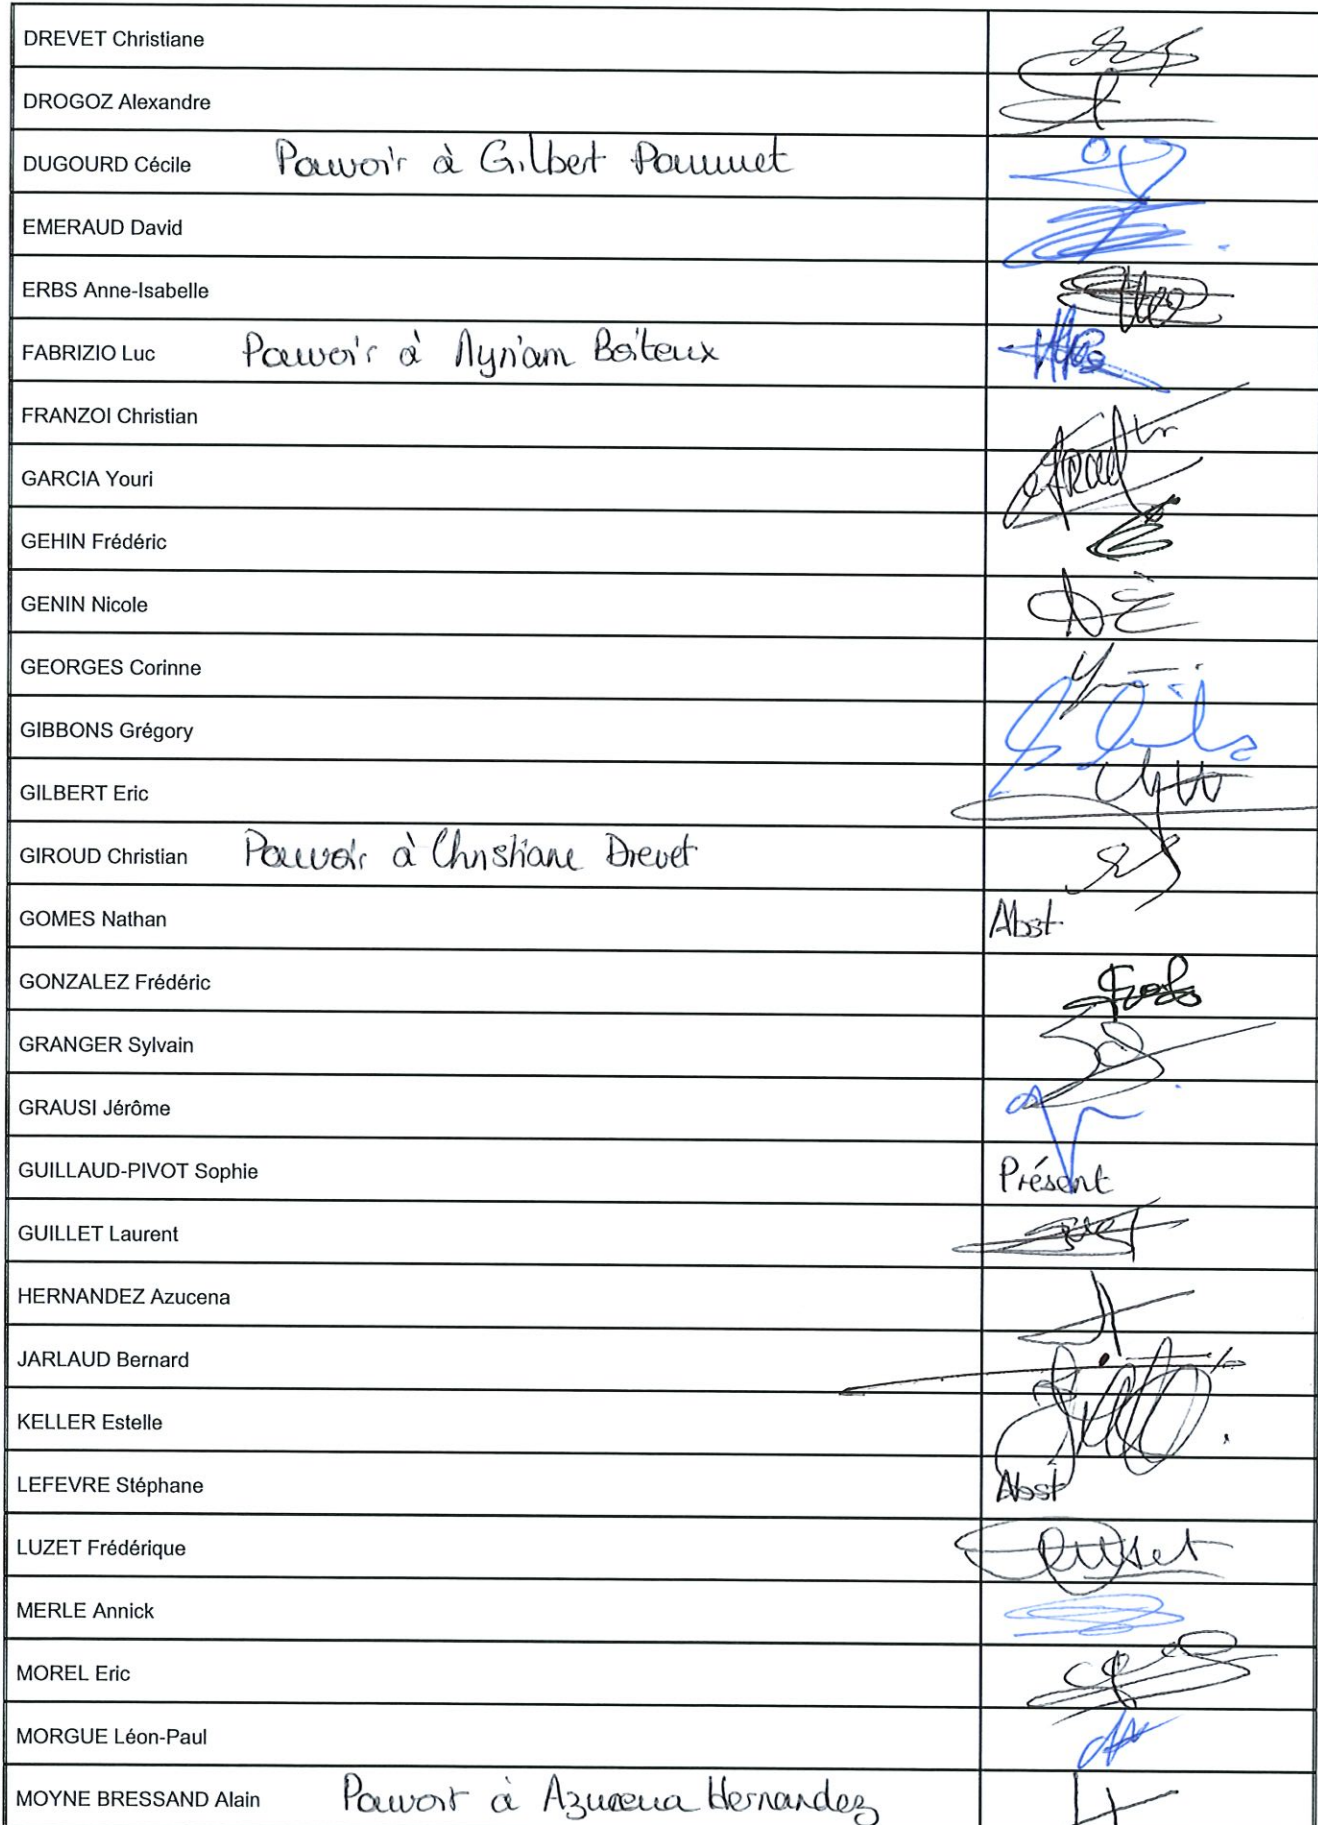 DREVET Christiane
DROGOZ Alexandre
DUGOURD Cécile Pouvoir à Gilbert Pommet
EMERAUD David
ERBS Anne-Isabelle
FABRIZIO Luc Pouvoir à Myriam Boiteux
FRANZOI Christian
GARCIA Youri
GEHIN Frédéric
GENIN Nicole
GEORGES Corinne
GIBBONS Grégory
GILBERT Eric
GIROUD Christian Pouvoir à Christiane Drevet
GOMES Nathan Abst
GONZALEZ Frédéric
GRANGER Sylvain
GRAUSI Jérôme
GUILLAUD-PIVOT Sophie Présent
GUILLET Laurent
HERNANDEZ Azucena
JARLAUD Bernard
KELLER Estelle
LEFEVRE Stéphane Abst
LUZET Frédérique
MERLE Annick
MOREL Eric
MORGUE Léon-Paul
MOYNE BRESSAND Alain Pouvoir à Azucena Hernandez